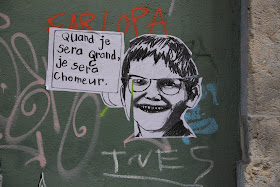 CARLOPA
Quand je
sera Grand,
je sera
Chomeur.
INES